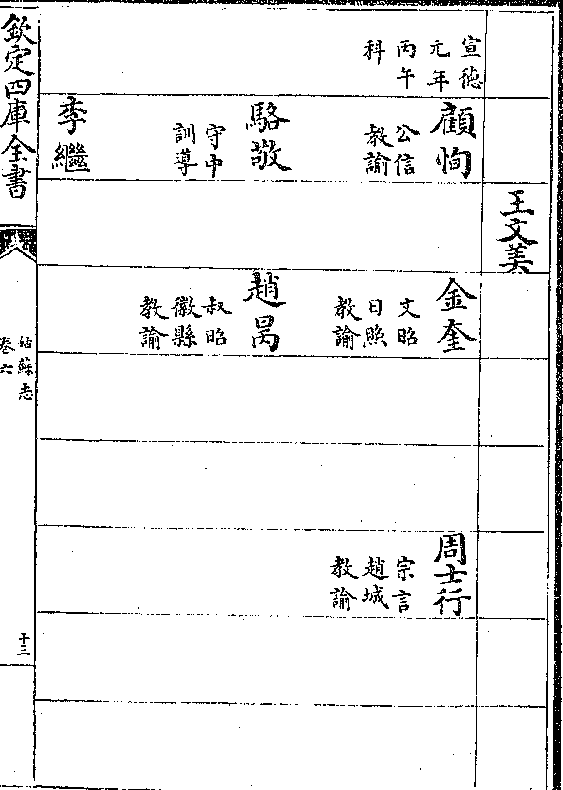 王文美
宣德
元年
丙午
科
顧恂
公信
教諭
駱敬
守中
訓導
季繼
金奎
文昭
日照
教諭
趙昺
叔昭
徽縣
教諭
周士行
宗言
趙城
教諭
欽定四庫全書
姑蘇志
卷六
十三